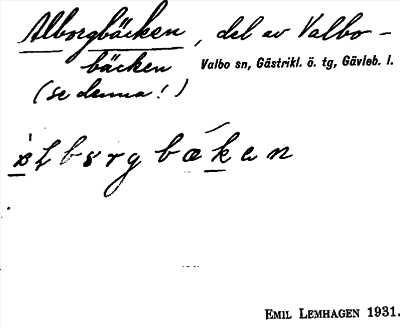 Alborgbäcken, del av Valbo-
bäcken Valbo sn, Gästrikl. ö. tg, Gävleb. l.
(se denna!)
EMIL LEMHAGEN 1931.